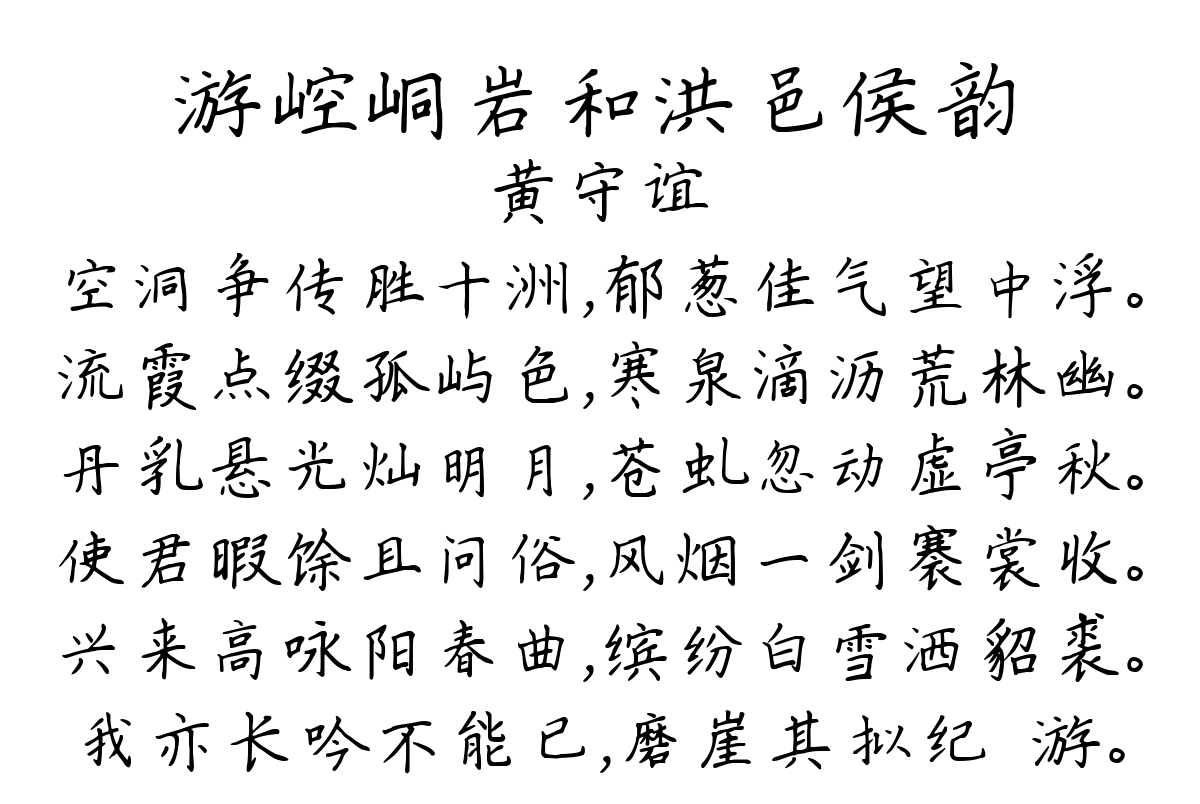 游崆峒岩和洪邑侯韵
黄守谊
空洞争传胜十洲,郁葱佳气望中浮。
流霞点缀孤屿色,寒泉滴沥荒林幽。
丹乳悬光灿明月,苍虬忽动虚亭秋。
使君暇馀且问俗,风烟一剑褰裳收。
兴来高咏阳春曲,缤纷白雪洒貂裘。
我亦长吟不能已,磨崖其拟纪 游。